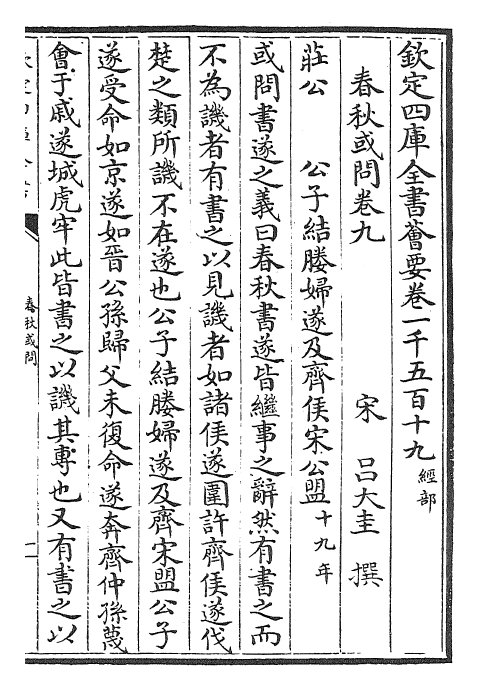 欽定四庫全書薈要卷一千五百十九 經部
春秋或問卷九
宋 呂大圭 撰
莊公
公子結媵婦遂及齊侯宋公盟 十九年
或問書遂之義曰春秋書遂皆繼事之辭然有書之而
不為譏者有書之以見譏者如諸侯遂圍許齊侯遂伐
楚之類所譏不在遂也公子結媵婦遂及齊宋盟公子
遂受命如京遂如晉公孫歸父未復命遂奔齊仲孫蔑
會于戚遂城虎牢此皆書之以譏其專也又有書之以
春秋或問
一